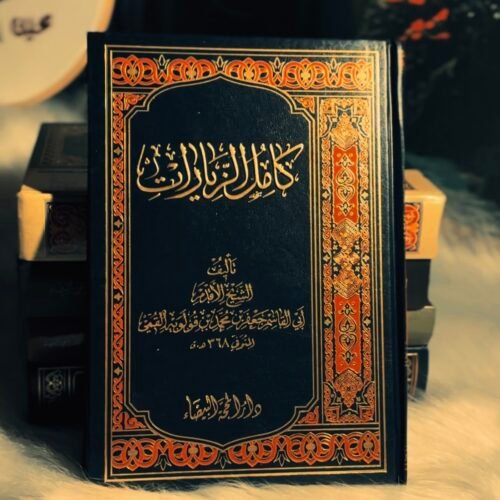 كامل الزيارات
تأليف
الشيخ الأقدم
أبي القاسم جعفر بن محمد بن قولويه القمي
المتوفى ٣٦٨ هـ.ق
دار المحجة البيضاء